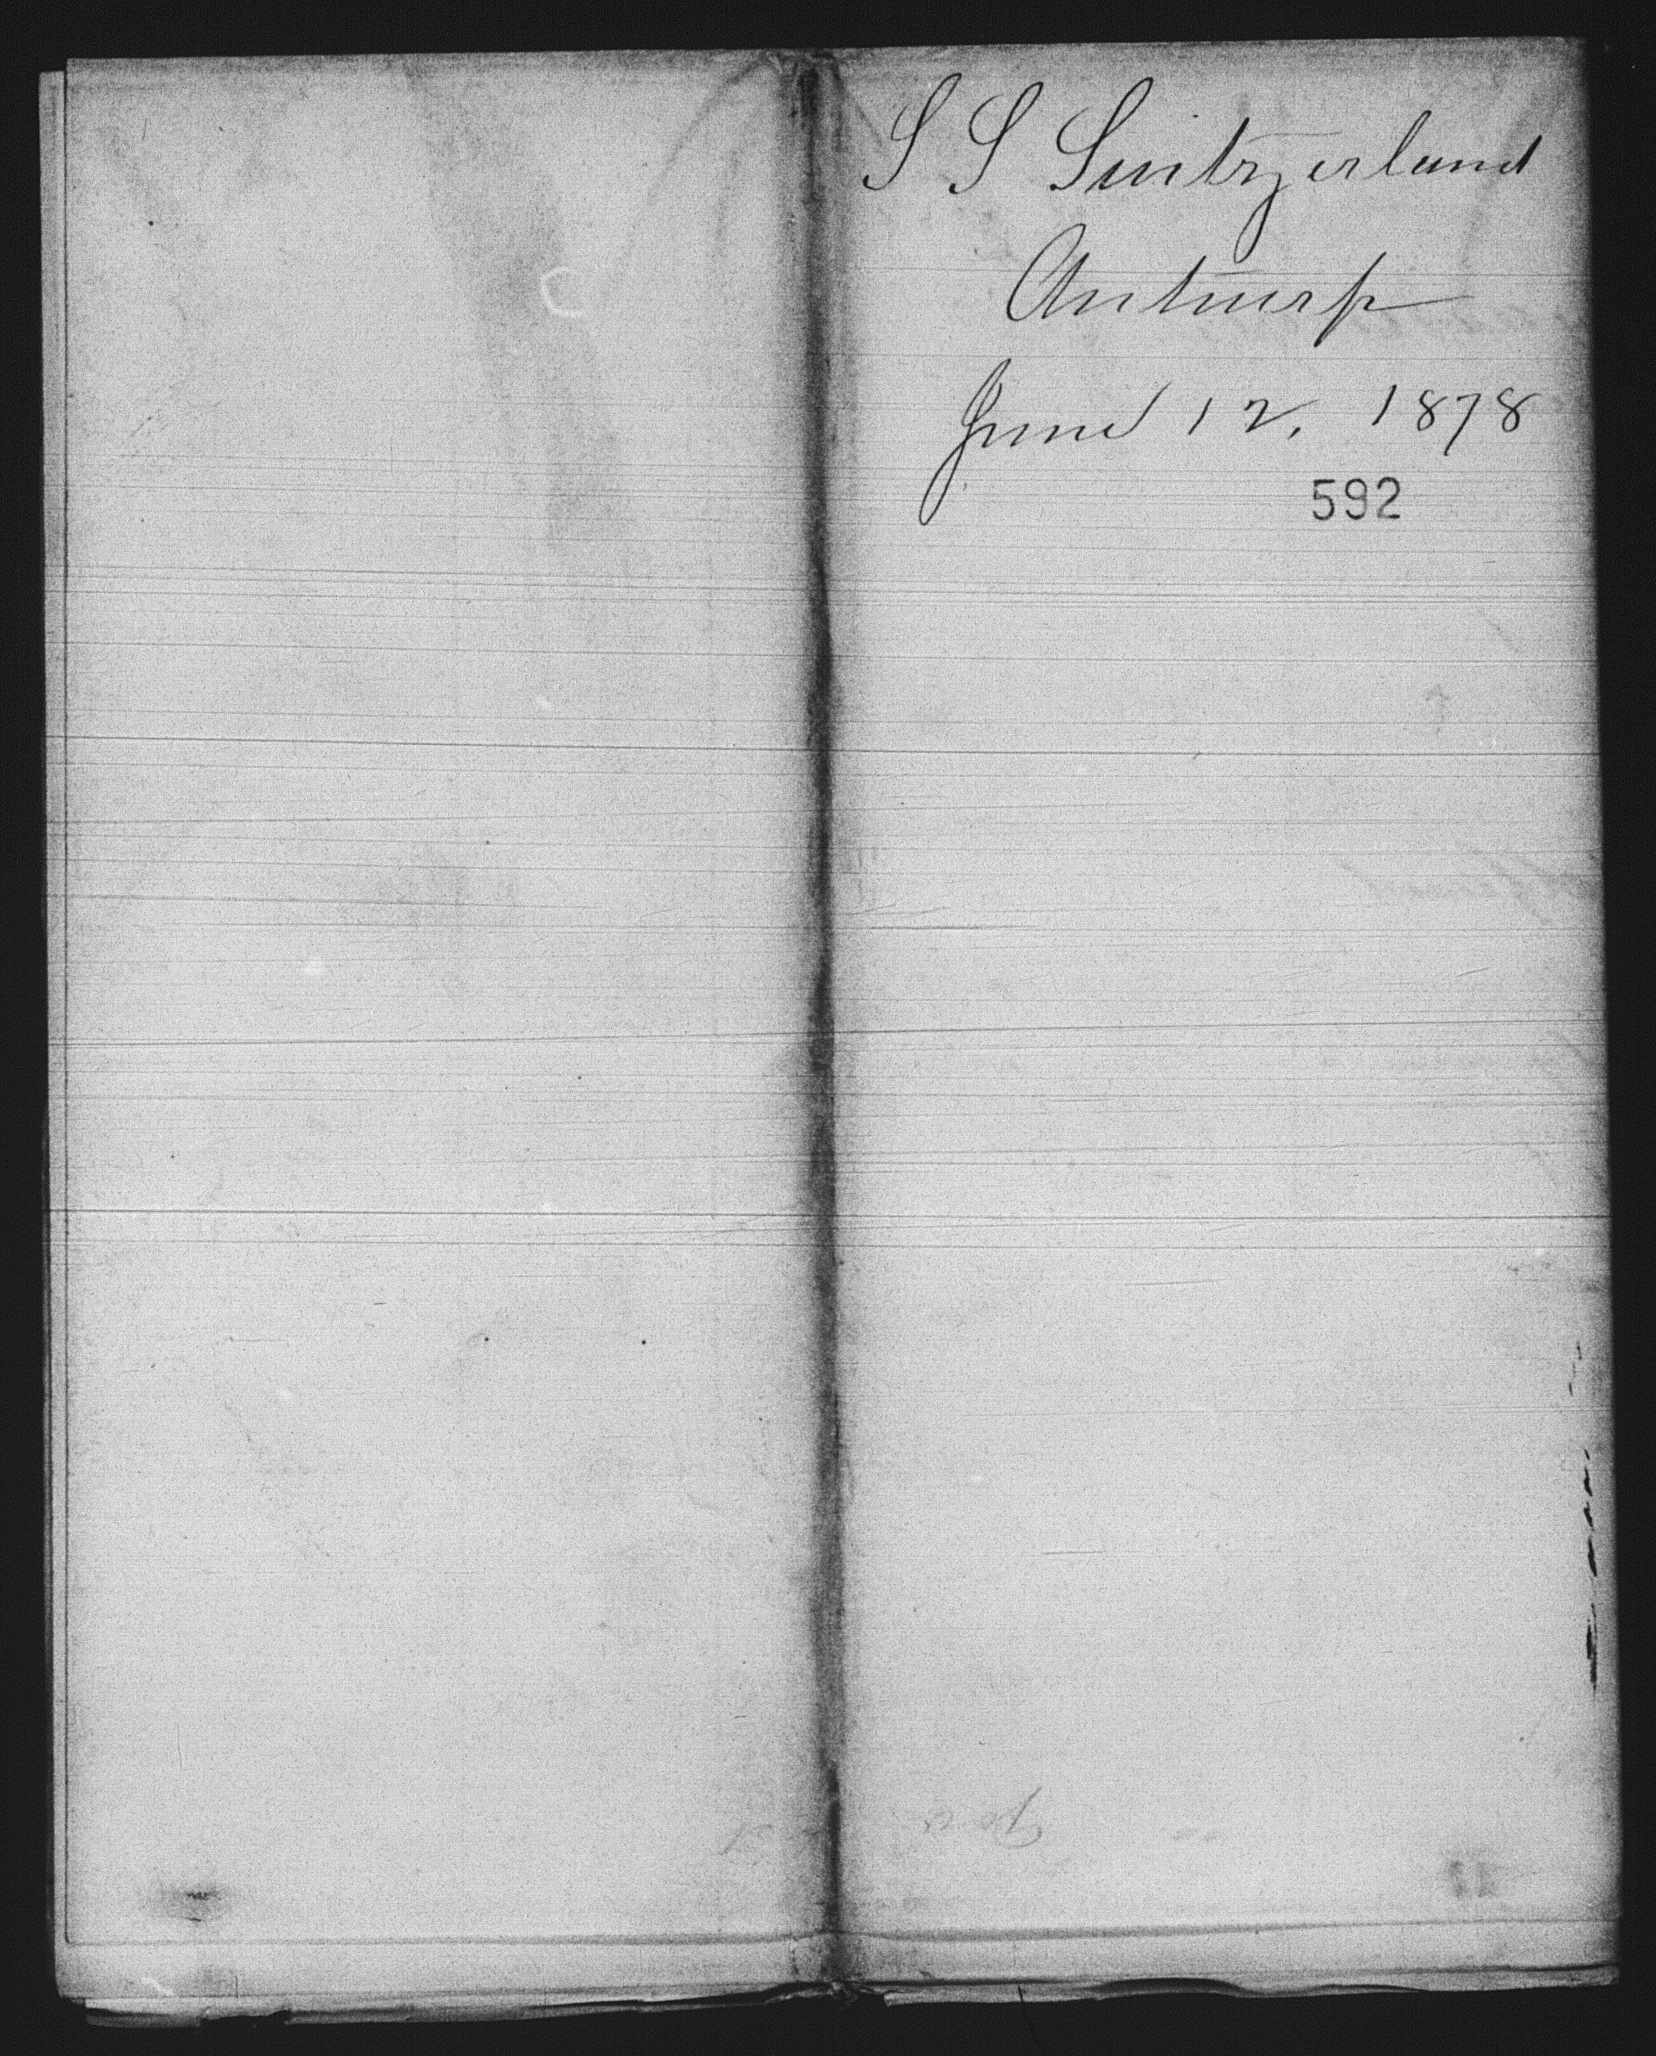 S S Switzerland
Antwerp
June 12, 1878
592